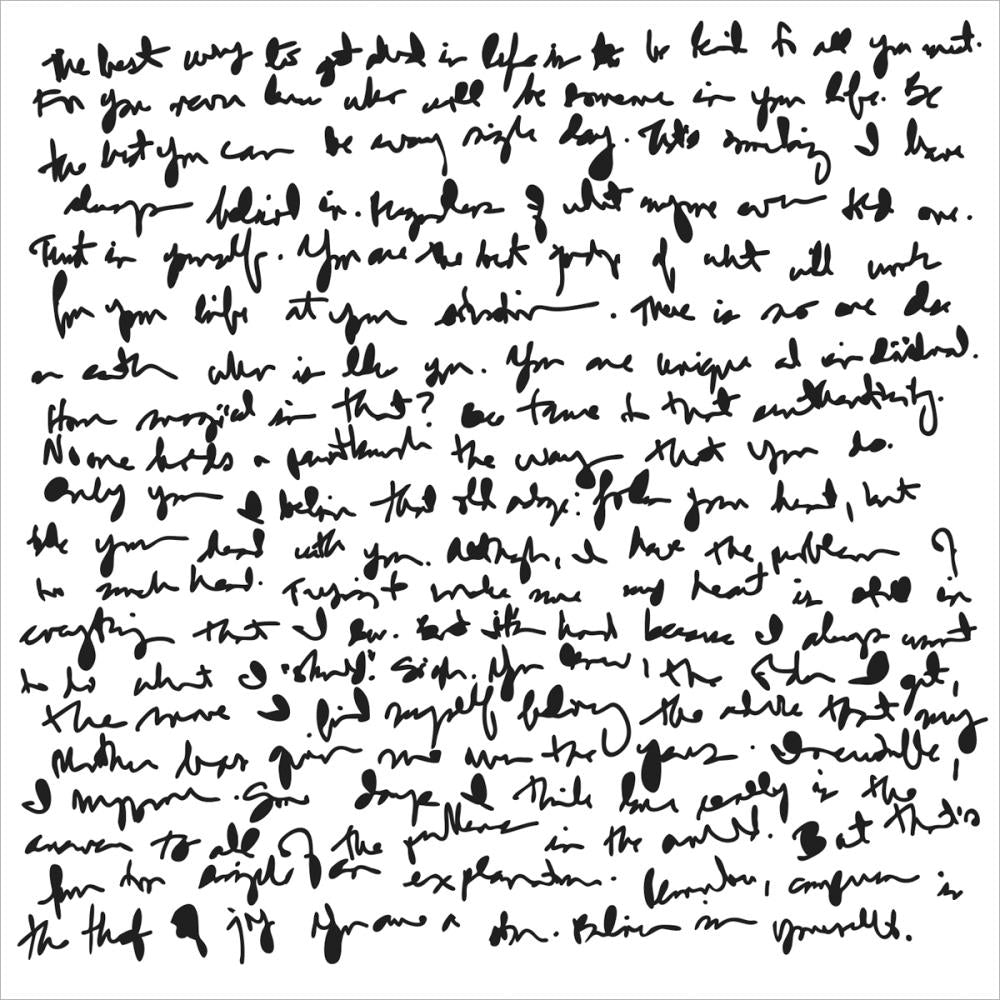 The best way to get ahead in life is to be kind to all you meet.
For you never know who will be someone in your life. Be
the best you can be every single day. It's something I have
always believed in. Regardless of what anyone ever told me.
Trust in yourself. You are the best judge of what will work
for your life at your . There is no one else
on earth who is like you. You are unique and individual.
How magical is that? Be true to that authenticity.
No one holds a paintbrush the way that you do.
Only you I believe that old adage: follow your heart, but
take your head with you. Although, I have the problem of
too much head. Trying to make sure my heart is also in
everything that I do. But it's hard because I always want
to do what I "should". Sigh. You know, the older I get,
the more I find myself following the advice that my
Mother has given me over the years. Incredible,
I suppose. Some days I think love really is the
answer to all of the problems in the world. But that's
far too simple of an explanation. Remember, comparison is
the thief of joy. You are a star. Believe in yourself.